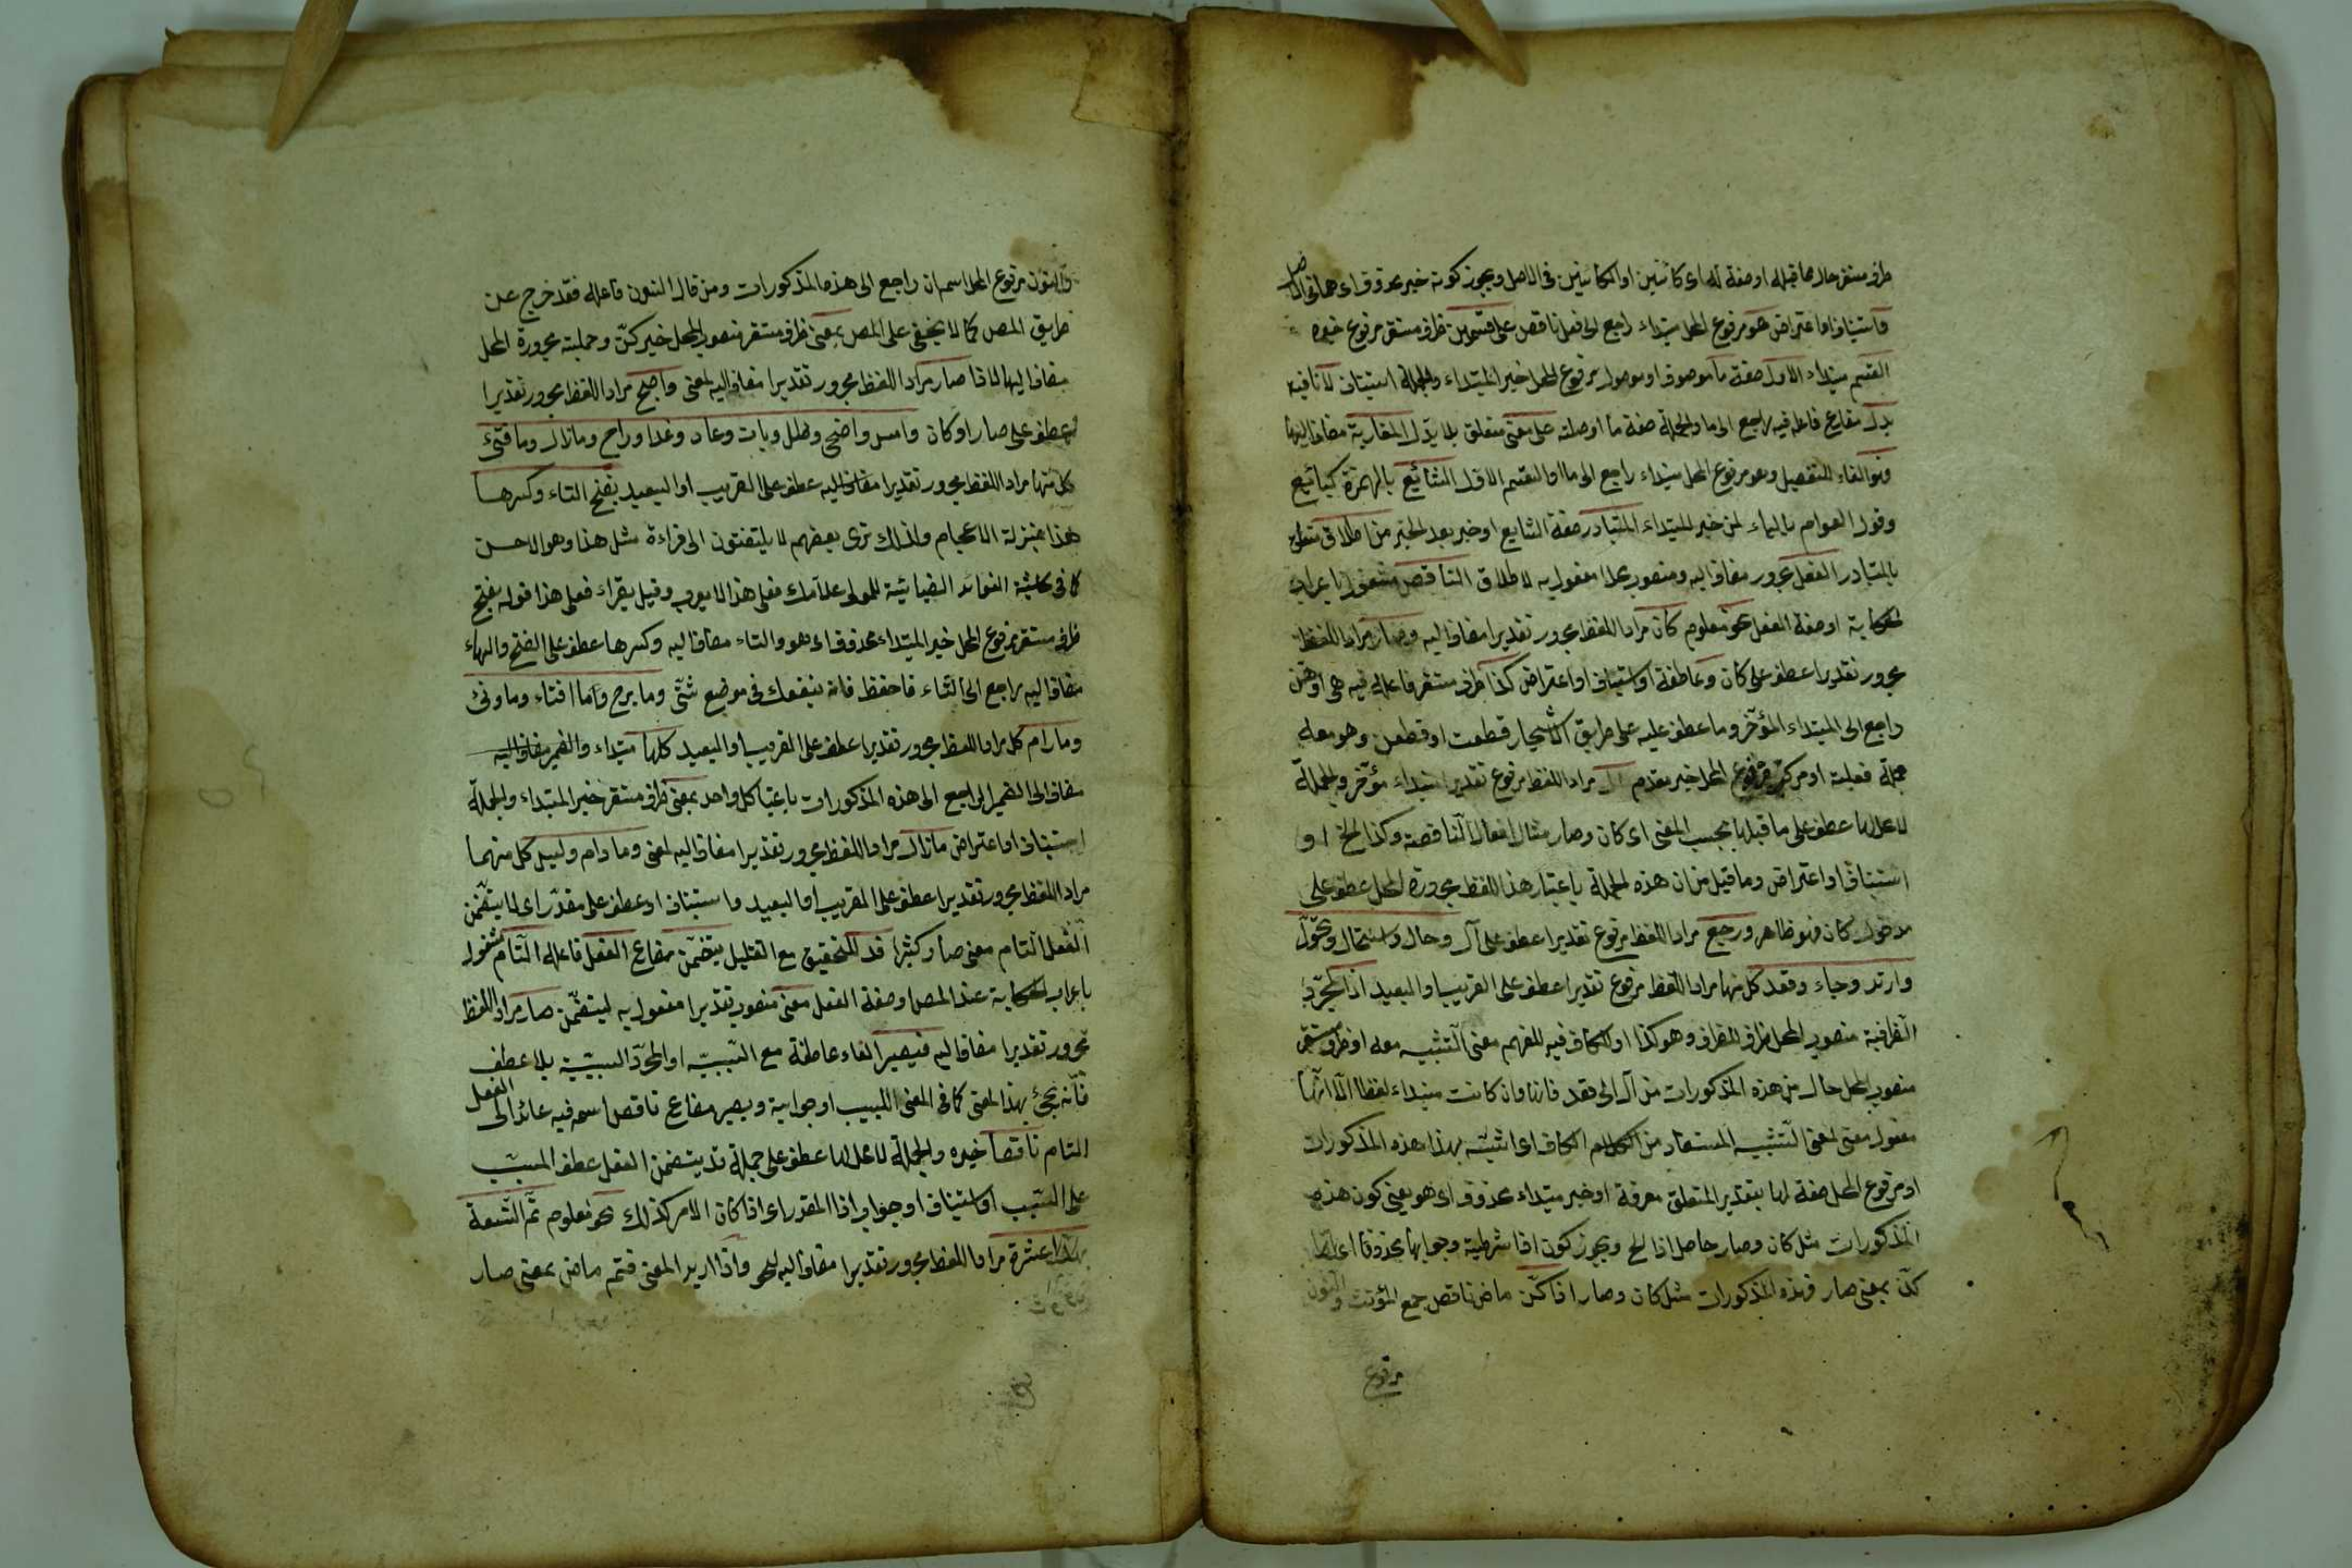 ظرف مستقر حال مما قبله او صفة له اى كائنين او الكائنين فى الاصل ويجوز كونه خبر محذوف اى هما فى الاصل
فاستيناف او اعتراض هو مرفوع المحل مبتداء راجع الى فعل ناقص على قسمين ظرف مستقر مرفوع خبره
القسم مبتداء الاول صفة ما موصوف او موصول مرفوع المحل خبر المبتداء والجملة استيناف لا نافية
يدل مضارع فاعله فيه راجع الى ما والجملة صفة ما او صلته على معنى متعلق بلا يدل المقاربة مضاف اليها
وهو الفاء للتفصيل وهو مرفوع المحل مبتداء راجع الى ما او القسم الاول الشائع بالهمزة كبائع
وقول العوام بالياء لحن خبر المبتداء المتبادر صفة الشايع او خبر بعد الخبر من اطلاق متعلق
بالمتبادر الفعل مجرور مضاف اليه ومنصوب محلا مفعول به لاطلاق الناقص مشغول باعراب
الحكاية او صفة الفعل نحو معلوم كان مراد اللفظ مجرور تقديرا مضاف اليه وصار مراد اللفظ
مجرور تقديرا عطف على كان و عاطفة او استيناف او اعتراض كذا ظرف مستقر فاعله فيه هى او هن
راجع الى المبتداء المؤخر وما عطف عليه على طريق الاشجار قطعت او قطعن وهو معه
جملة فعلية او مركب مرفوع المحل خبر مقدم آل مراد اللفظ مرفوع تقديرا مبتداء مؤخر والجملة
لا محل لها عطف على ما قبلها بحسب المعنى اى كان وصار مثال افعال الناقصة وكذا الخ او
استيناف او اعتراض وما قيل من ان هذه الجملة باعتبار هذا اللفظ مجرورة المحل عطف على
مدخول كان فهو ظاهر ورجع مراد اللفظ مرفوع تقديرا عطف على آل وحال واستحال وتحول
وارتد وجاء وقعد كل منها مراد اللفظ مرفوع تقديرا عطف على القريب او البعيد اذا لمجرد
الظرفية منصوب المحل ظرف للظرف وهو كذا او للكاف فيه للفهم معنى التشبيه معه او ظرف مستقر
منصوب المحل حال من هذه المذكورات من آل الى قعد فانها وان كانت مبتداء لفظا الا انها
مفعول معنى لمعنى التشبيه المستفاد من الكاف اى اشبه بهذا هذه المذكورات
او مرفوع المحل صفة لها بتقدير المتعلق معرفة او خبر مبتداء محذوف اى هو يعنى كون هذه
المذكورات مثل كان وصار حاصل اذا الخ ويجوز كون اذا شرطية وجوابها محذوفا اى اذا
كن بمعنى صار فهذه المذكورات مثل كان وصار اذا كن ماض ناقص جمع المؤنث والنون
مرفوع
والنون مرفوع المحل اسم ان راجع الى هذه المذكورات ومن قال النون فاعله فقد خرج عن
طريق المص كما لا يخفى على المص بمعنى ظرف مستقر منصوب المحل خبر كن وجملته مجرورة المحل
مضاف اليها لاذا صار مراد اللفظ مجرور تقديرا مضاف اليه لمعنى واصبح مراد اللفظ مجرور تقديرا
عطف على صار او كان وامسى واضحى وظل وبات وعاد وغدا وراح وما زال وما فتئ
كل منها مراد اللفظ مجرور تقديرا مضاف اليه عطف على القريب او البعيد بفتح التاء وكسرها
هذا بمنزلة الاعجام ولذلك ترى بعضهم لا يلتفتون الى قراءة مثل هذا وهو الاحسن
كما فى حاشية الفوائد الضيائية للمولى علامك فعلى هذا لا يعرب وقيل يقراء فعلى هذا قوله بفتح
ظرف مستقر مرفوع المحل خبر المبتداء محذوف اى هو والتاء مضاف اليه وكسرها عطف على الفتح والهاء
مضاف اليه راجع الى التاء فاحفظ فانه ينفعك فى موضع شتى وما برح وما افتاء وما ونى
وما رام كل مراد اللفظ مجرور تقديرا عطف على القريب او البعيد كلها مبتداء والضمير مضاف اليه
مضاف الى الضمير الراجع الى هذه المذكورات باعتبار كل واحد بمعنى ظرف مستقر خبر المبتداء والجملة
استيناف او اعتراض ما زال مراد اللفظ مجرور تقديرا مضاف اليه لمعنى وما دام وليس كل منهما
مراد اللفظ مجرور تقديرا عطف على القريب او البعيد و استيناف او عطف على مقدر اى لما يتضمن
الفعل التام معنى صار كثيرا قد للتحقيق مع التقليل يتضمن مضارع الفعل فاعله التام مشغول
باعراب الحكاية عند المص او صفة الفعل معنى منصوب تقديرا مفعول به ليتضمن صار مراد اللفظ
مجرور تقديرا مضاف اليه فيصير الفاء عاطفة مع السببية او لمجرد السببية بلا عطف
فانه يجئ بهذا المعنى كما فى المغنى اللبيب او جوابية ويصير مضارع ناقص اسمه فيه عائد الى الفعل
التام ناقصا خبره والجملة لا محل لها عطف على جملة قد يتضمن الفعل عطف المسبب
على السبب او استيناف او جواب اذا المقدر اى اذا كان الامر كذلك نحو معلوم تم التسعة
بهذا عشرة مراد اللفظ مجرور تقديرا مضاف اليه لنحو واذا اريد المعنى فتم ماض بمعنى صار